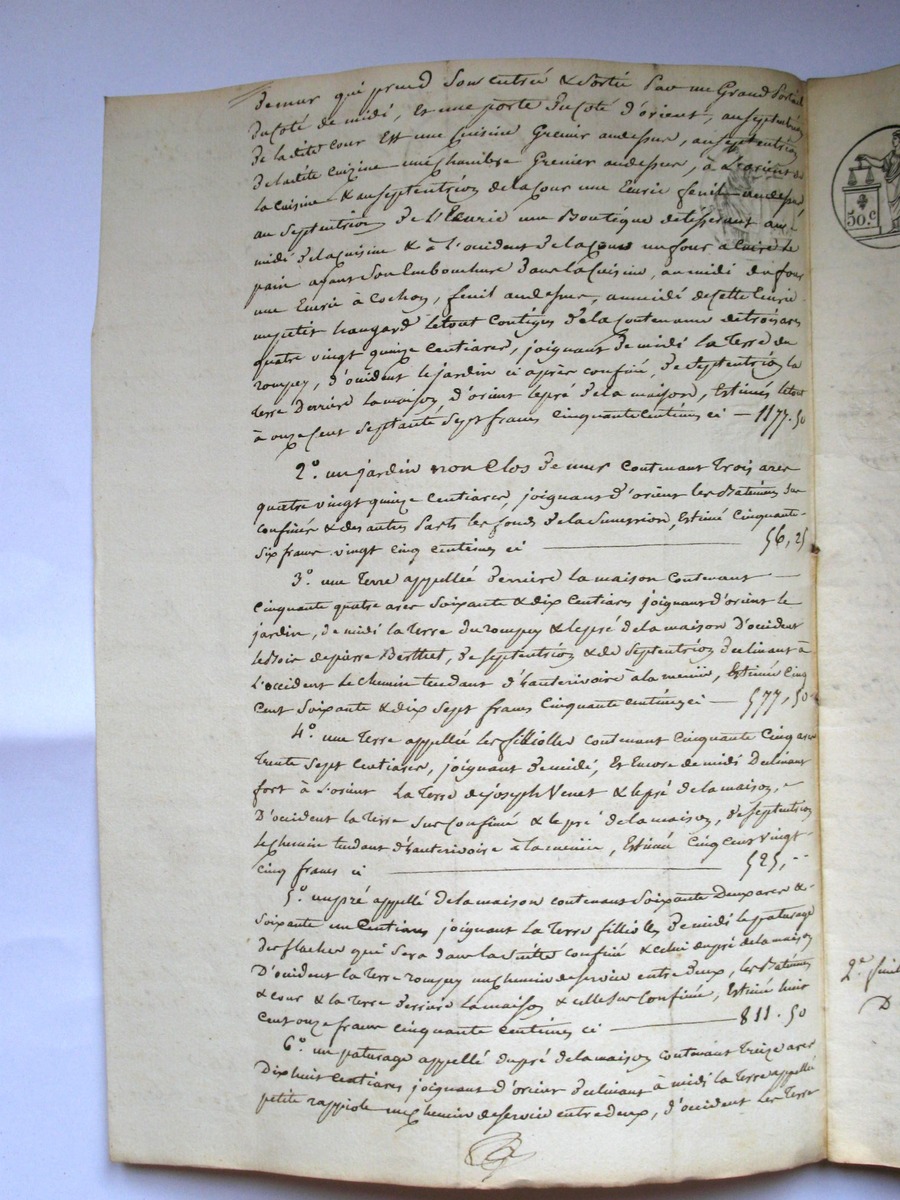 de mur qui prend son entrée & sortie par un Grand Portail
du coté de midi, et une porte du coté d'orient, au septentrion
de la dite cour Est une Cuisine Grenier au dessus, au septentrion
de la dite Cuizine une Chambre Grenier au dessus, à L'orient de
la Cuisine & au septentrion de la Cour une Ecurie fenil au dessus
au septentrion de l'Ecurie une Boutique de tisserant au
midi de la Cuisine & à l'occident de la Cour un four à Cuire le
pain ayant son Embouchure dans la Cuisine, au midi du four
une Ecurie à Cochon, fenil au dessus, au midi de cette Ecurie
un petit hangard le tout Contigus de la Contenance de trois ares
quatre vingt quinze Centiares, joignant de midi la Terre du
rompey, d'occident le jardin ci après confiné, de septentrion la
terre Derriere la maison d'orient le pré de la maison, Estimés le tout
à onze Cent Septante Sept francs Cinquante Centimes ci — 1177.50
2.° un jardin non Clos de mur contenant trois ares
quatre vingt quinze Centiares, joignant d'orient les Batimens sus
confinés & des autres Parts les fonds de la Succession, Estimé Cinquante
Six francs vingt cinq centimes ci — 56,25
3.° une Terre appellée derriere la maison contenant —
Cinquante quatre ares Soixante & dix Centiares joignant d'orient le
jardin, de midi la Terre du rompey & le pré de la maison D'occident
le Bois de pierre Berthet, de septentrion & de Septentrion declinant à
L'occident Le chemin tendant d'hauterivoire à la , Estimée Cinq
Cent Soixante & dix Sept francs Cinquante centimes ci — 577,50
4.° une Terre appellée les filiolles contenant Cinquante Cinq ares
trente Sept Centiares, joignant de midi, Et Encore de midi Declinant
fort à L'orient La Terre de joseph Venet & le pré de la maison,
D'occident la Terre Sus Confinée & le pré de la maison, de septentrion
le Chemin tendant d'hauterivoire à la , Estimée Cinq Cent Vingt
Cinq francs ci — 525,--
5.° un pré appellé de la maison contenant Soixante Deux ares &
Soixante un Centiares joignant La Terre filiolles de midi le paturage
des flaches qui Sera dans la Suite confiné & celui du pré de la maison
D'occident la terre rompey un chemin de service entre deux, les Batimens
& cour & la Terre derriere la maison & celle Sus Confinée, Estimé huit
Cent onze francs cinquante centimes ci — 811.50
6.° un paturage appellé du pré de la maison contenant Treize ares
Dix huit Centiares joignant d'orient declinant à midi la Terre appellée
petite un chemin de service entre deux, d'occident les Terre
50.c
2.e
D